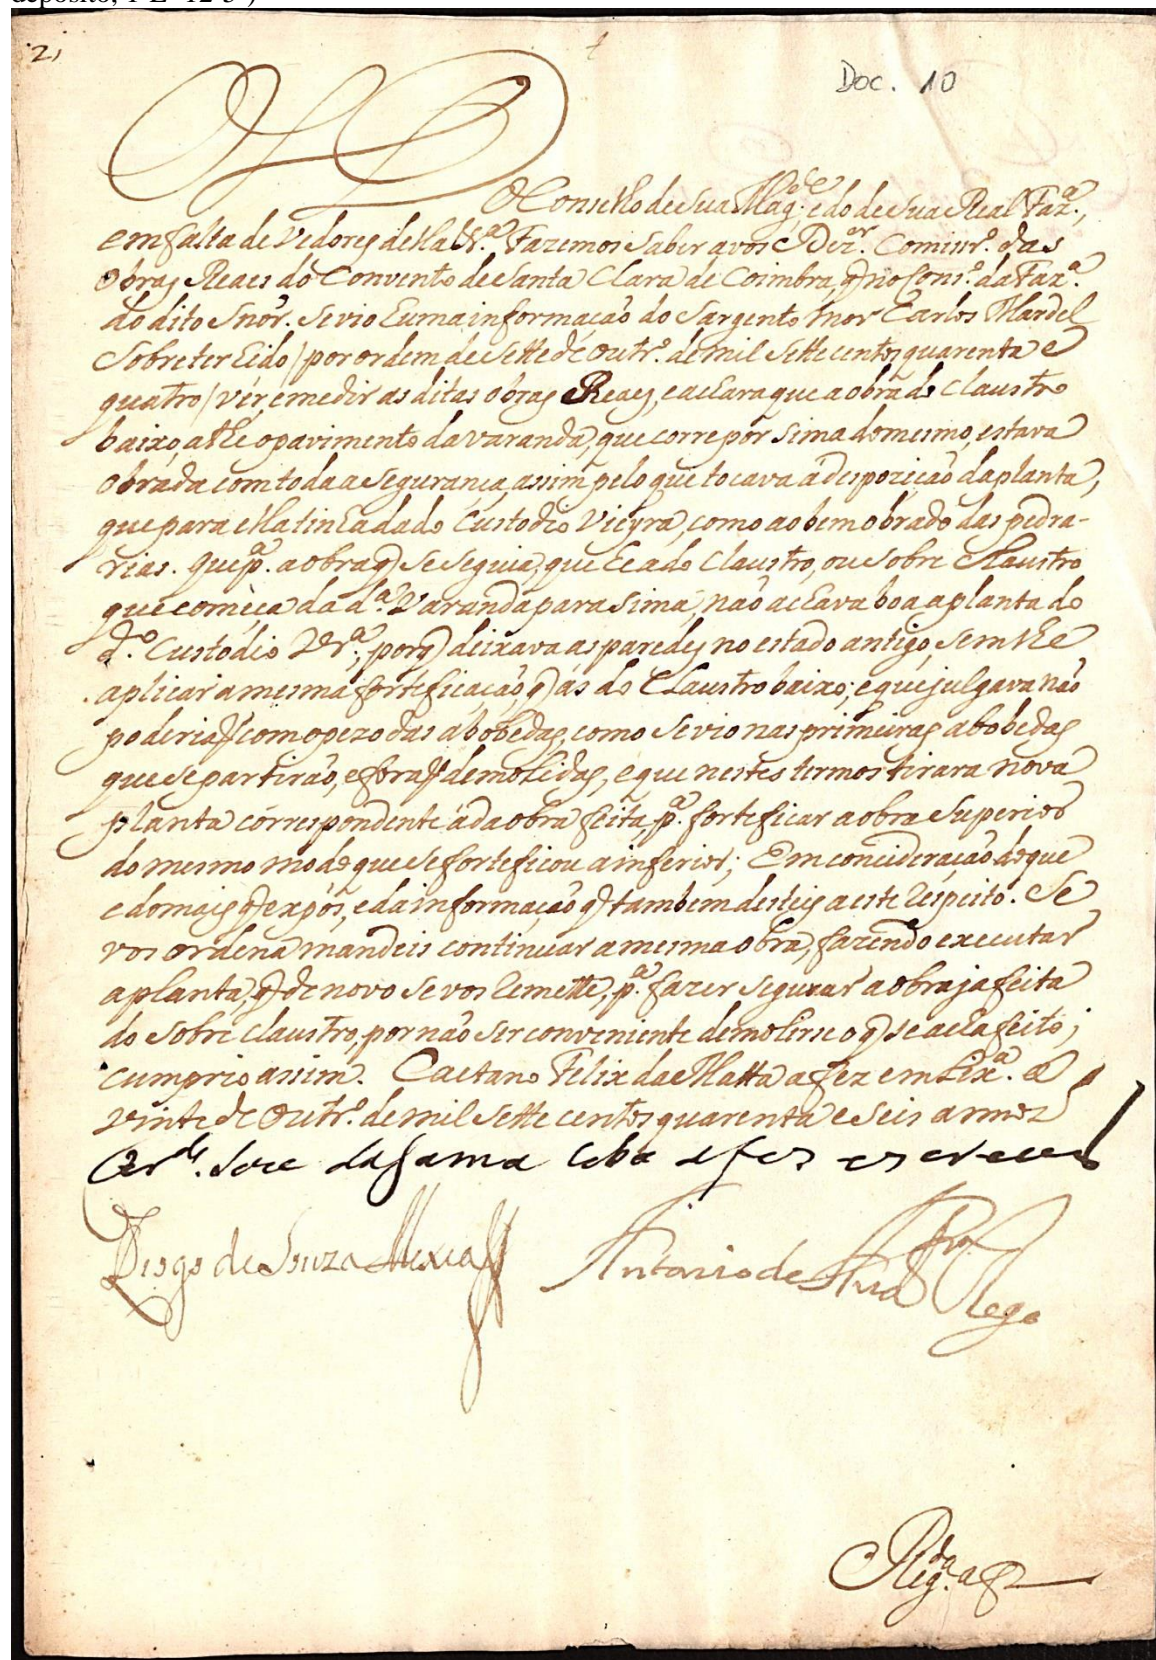 21
Doc. 10
O Conselho de Sua Mag.de e do de Sua Real Faz.a,
em falta de Vedores della &.a Fazemos saber a vos Dez.or Comissr.o das
Obras Reaes do Convento de Santa Clara de Coimbra, q no Cons.o da Faz.a
do dito Snõr. Se vio huma informação do Sargento mor Carlos Mardel
Sobre ter hido / por ordem de Sette de Outr.o de mil Sette centos quarenta e
quatro / vêr, e medir as ditas obras Reaes, e aclara que a obra do Claustro
baixo, athe o pavimento da varanda, que corre por Sima do mesmo, estava
obrada com toda a Segurança, assim pelo que tocava á despozição da planta,
que para ella tinha dado Custodio Vieyra, como ao bem obrado das pedra-
rias. Que p.a a obra q Se Seguia, que he a do Claustro, ou Sobre Claustro
que comèça da d.a Varanda para Sima, não achava boa a planta do
d.o Custodio Vr.a, porq deixava as paredes no estado antigo, Sem lhe
aplicar a mesma forteficação, q ás do Claustro baixo; e que julgava não
poderiaõ com o pezo das abobedas, como Se vio nas primeiras abobedas
que Se partirão, e foraõ demolidas, e que nestes termos tirara nova
planta córrespondente á da obra feita p.a forteficar a obra Superior
do mesmo modo que Se forteficou a inferior; Em concideração do que
e do mais q expôs, e da informação q tambem desteis a este respeito. Se
vos ordena mandeis continuar a mesma obra, fazendo executar
a planta, q de novo Se vos remette, p.a fazer Segurar a obra ja feita
do Sobre claustro, por não Ser conveniente demolirse o q Se acha feito;
cumprio assim. Caetano Felix da Matta a fez em Lix.a a
vinte de Outr.o de mil Sette centos quarenta e Seis annos
Jose da Gama Lobo a fez escrever
Diogo de Souza Mexia Antonio de And.e Rego
Reg.da a f